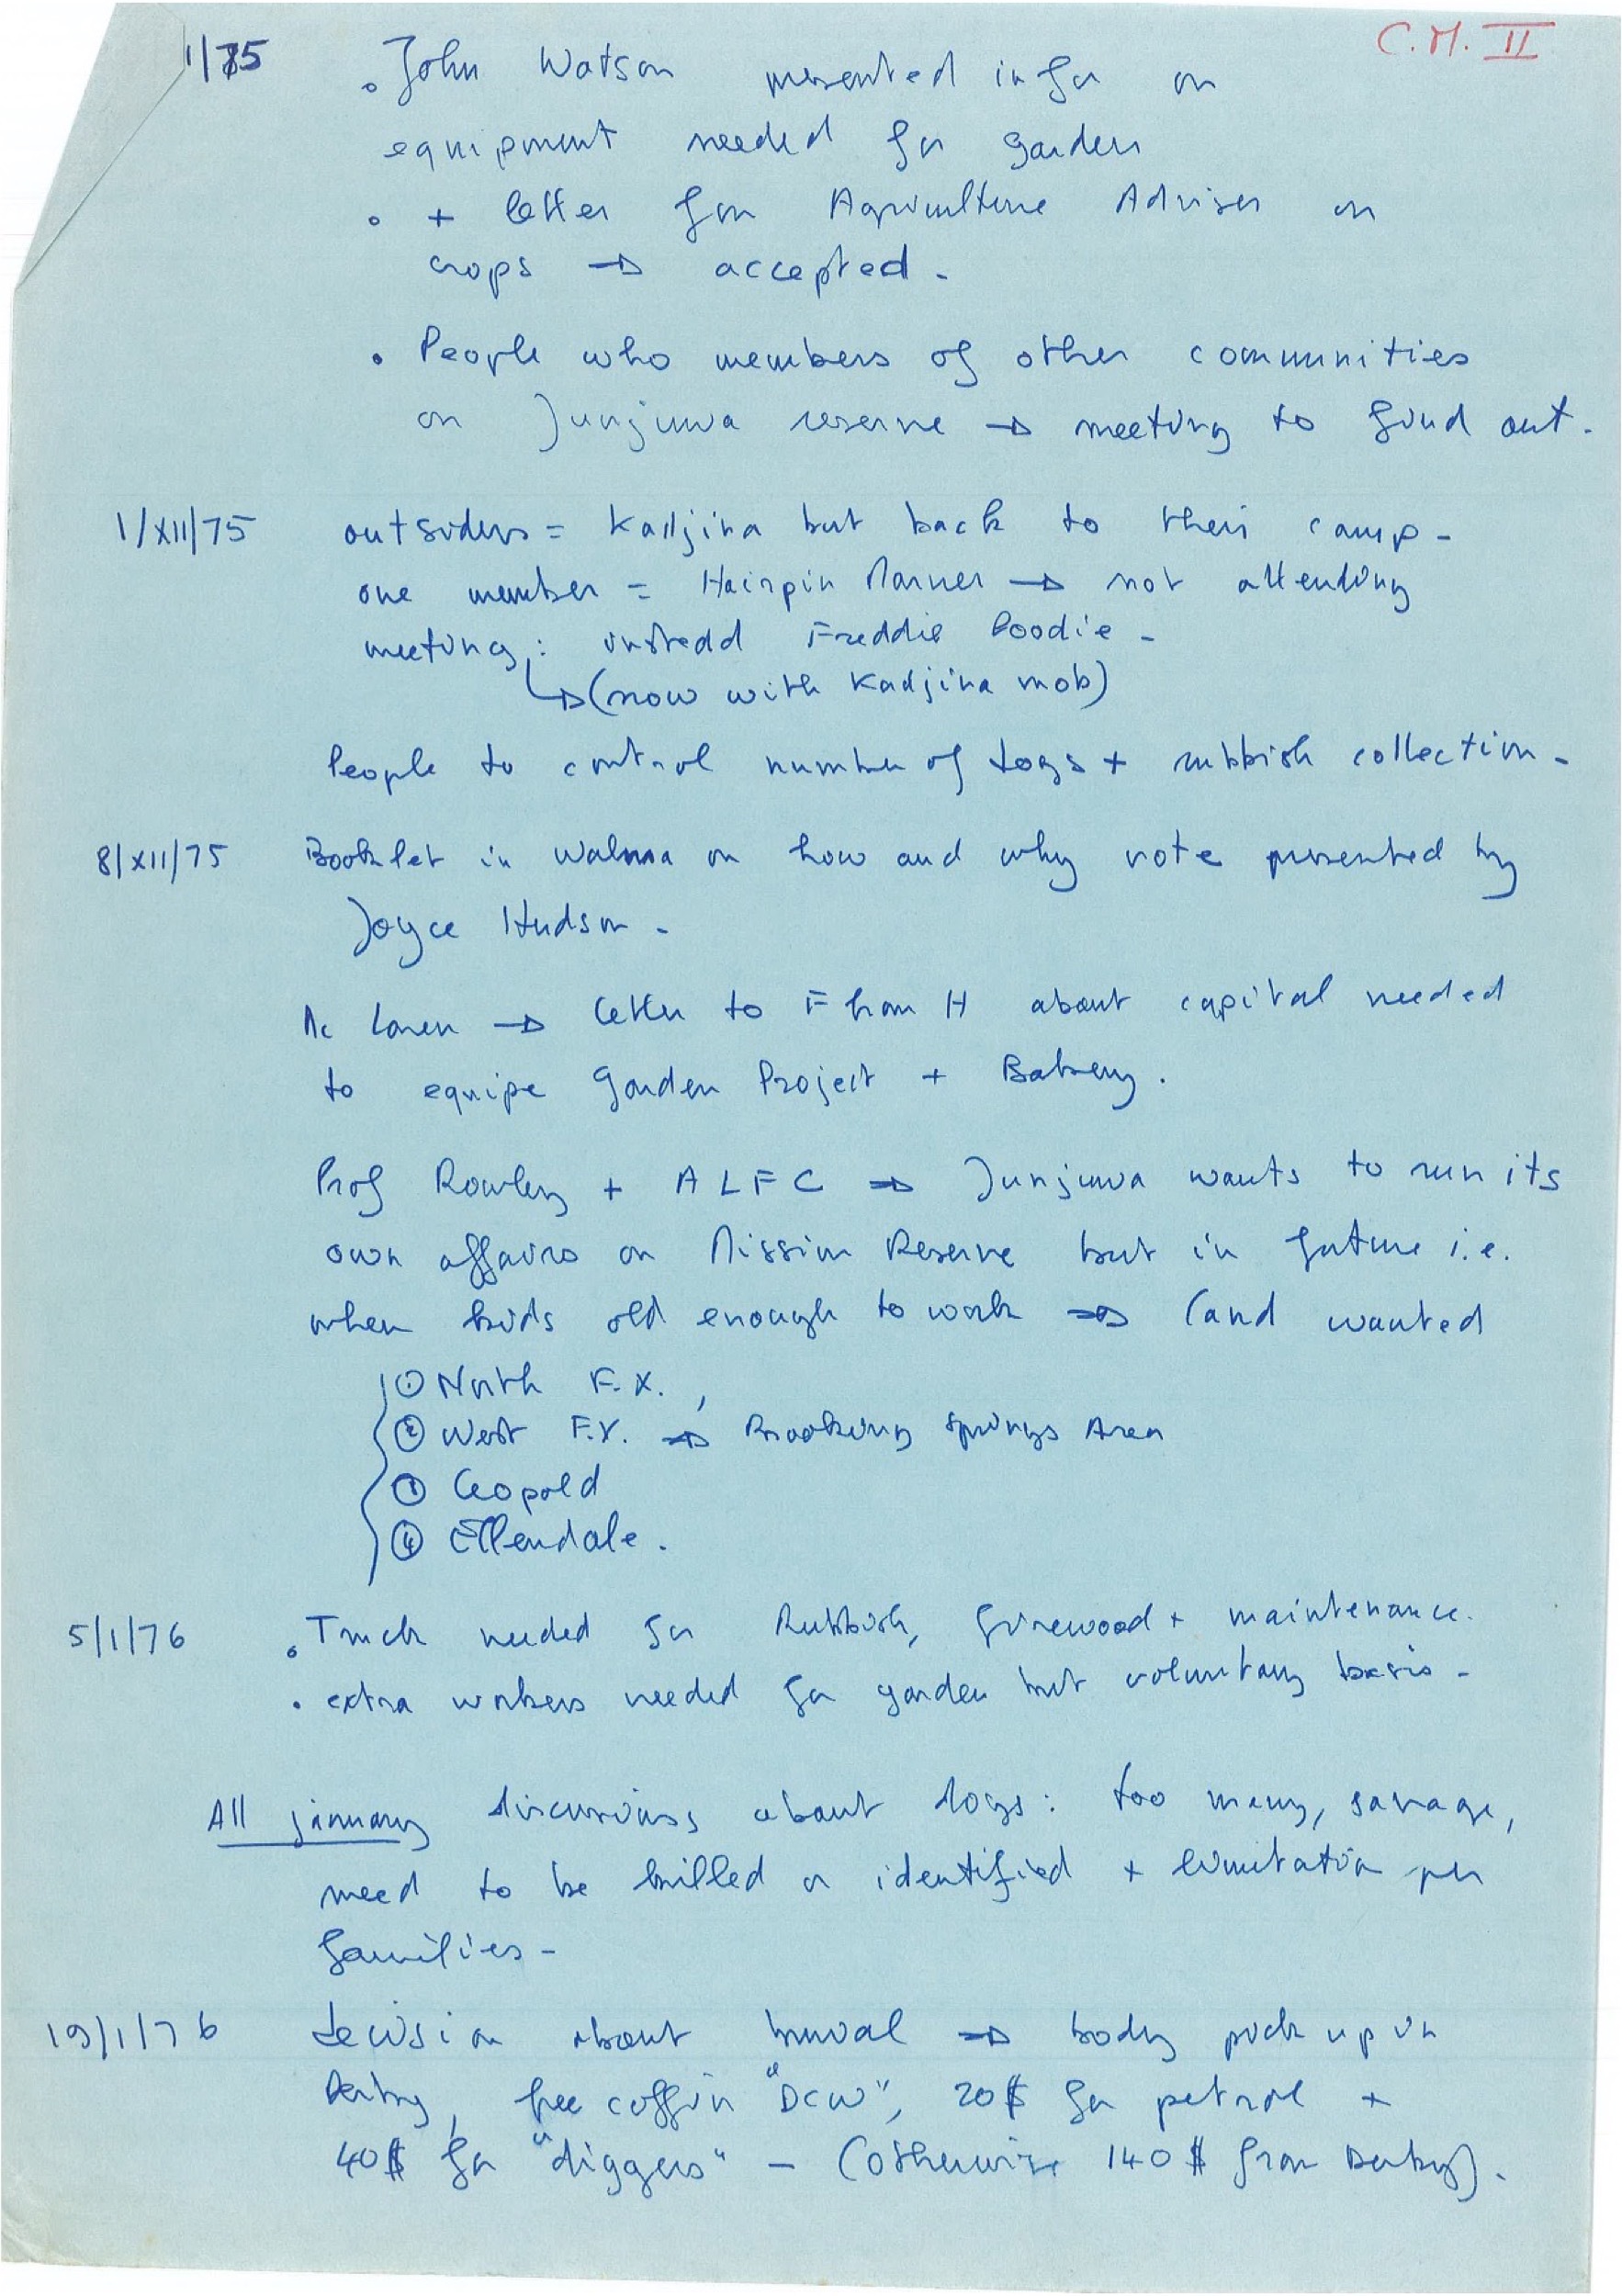 C.M. II
1/75 . John Watson presented info on
equipment needed for garden
. + letter from Agriculture Adviser on
crops → accepted.
. People who members of other communities
on Junjuwa reserve → meeting to find out.
1/XII/75 outsiders = Kadjina but back to their camp -
one member = Hairpin → not attending
meeting : instead Freddie -
↳ (now with Kadjina mob)
People to control number of dogs + rubbish collection -
8/XII/75 Booklet in on how and why vote presented by
Joyce Hudson -
→ letter to F from H about capital needed
to equipe garden Project + Bakery.
Prof Rowley + ALFC → Junjuwa wants to run its
own affairs on Mission Reserve but in future i.e.
when kids old enough to work → land wanted
① North F.X.,
② West F.X. → Brooking Springs Area
③ Leopold
④ Ellendale.
5/1/76 . Truck needed for Rubbish, firewood + maintenance.
. extra workers needed for garden but voluntary basis -
All january discussions about dogs : too many, savage,
need to be killed or identified + limitation per
families -
19/1/76 decision about burial → body pick up in
Derby, free coffin "DCW", 20$ for petrol +
40$ for "diggers" - (otherwise 140$ from Derby).